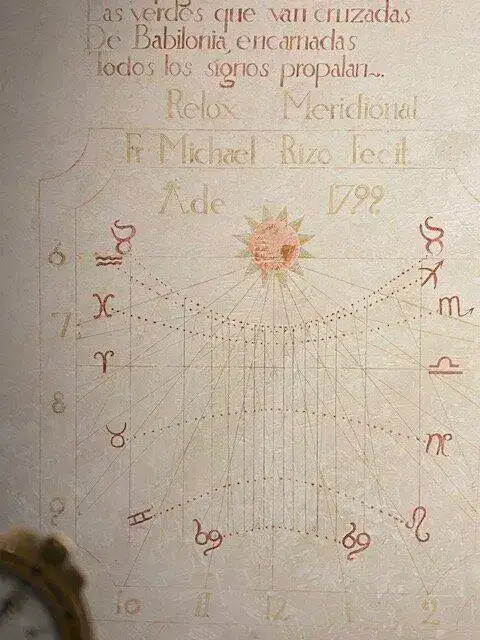 Las verdes que van cruzadas
De Babilonia, encarnadas
Todos los signos propalan
Relox Meridional
Fr Michael Rizo Fecit.
A de 1799
♑ ♑
6 ♒ ♐
7 ♓ ♏
♈ ♎
8
♉ ♍
9
♊ ♌
♋ ♋
10 11 12 1 2